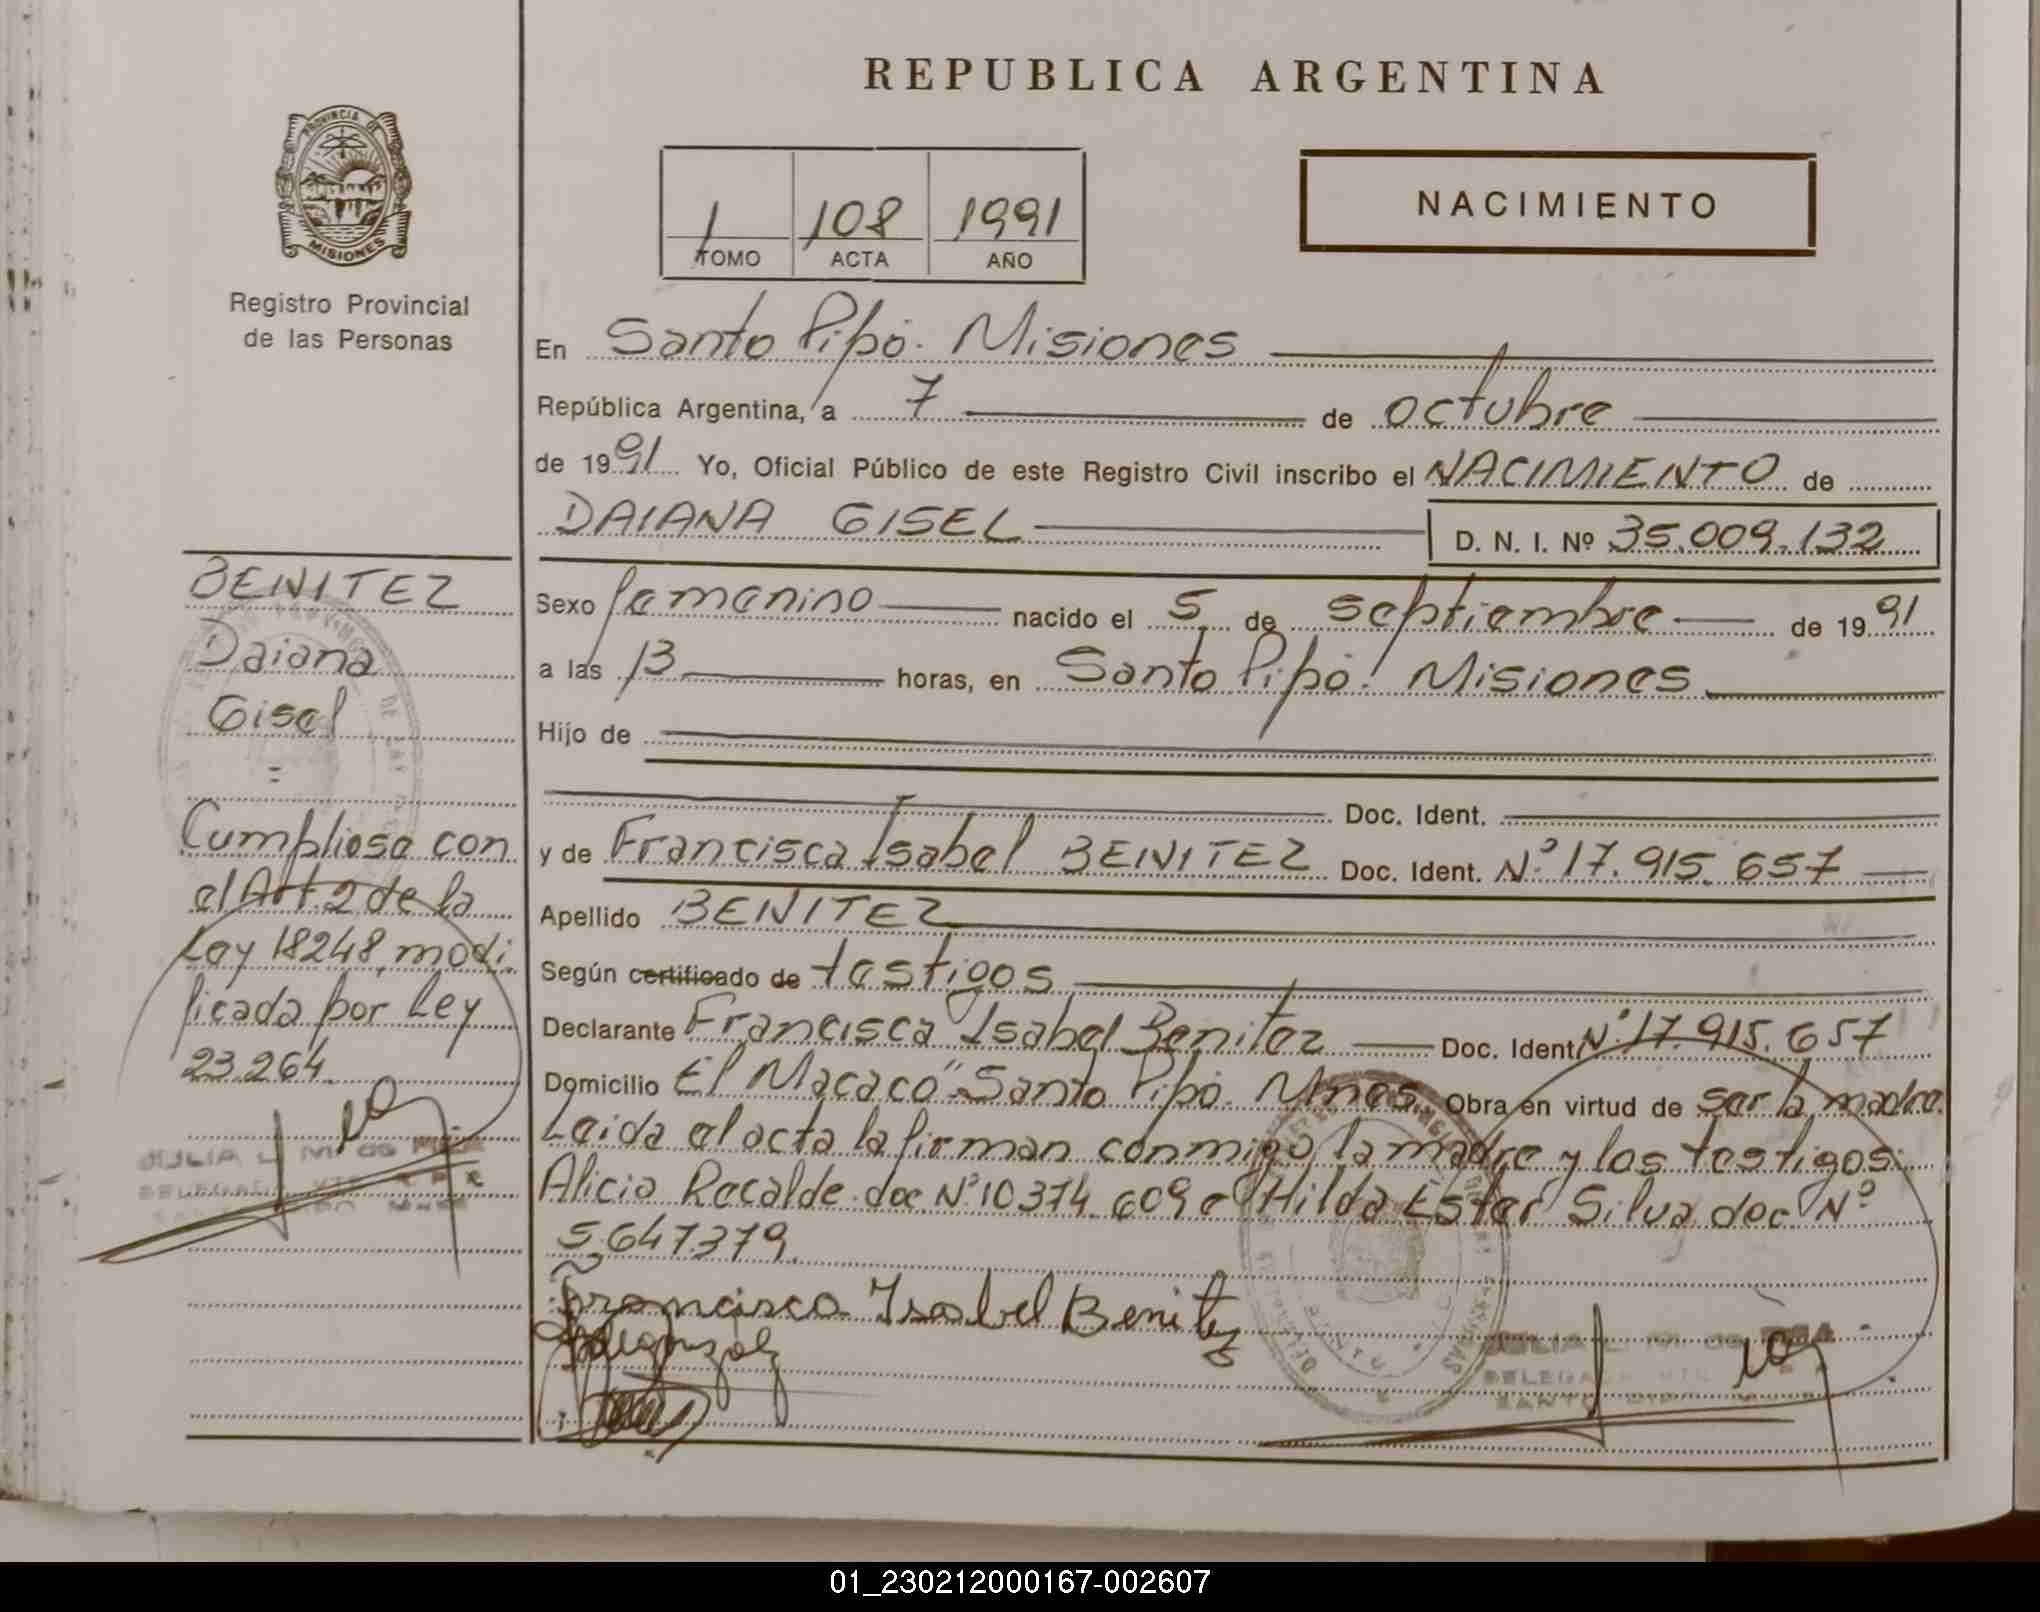 REPUBLICA ARGENTINA
PROVINCIA DE
MISIONES
Registro Provincial
de las Personas
1 108 1991
TOMO ACTA AÑO
NACIMIENTO
En Santo Pipó. Misiones
República Argentina, a 7 de octubre
de 1991 Yo, Oficial Público de este Registro Civil inscribo el NACIMIENTO de
DAIANA GISEL D. N. I. Nº 35.009.132
BENITEZ
Daiana
Gisel
=
Cumpliose con
el Art. 2 de la
Ley 18248, modi
ficada por Ley
23.264.
Sexo femenino nacido el 5 de septiembre de 1991
a las 13 horas, en Santo Pipó. Misiones
Hijo de
Doc. Ident.
y de Francisca Isabel BENITEZ Doc. Ident. Nº 17.915.657
Apellido BENITEZ
Según certificado de testigos
Declarante Francisca Isabel Benitez Doc. Ident. Nº 17.915.657
Domicilio El Macaco" Santo Pipó. Mnes. Obra en virtud de ser la madre.
Leida el acta la firman conmigo la madre y los testigos:
Alicia Recalde doc Nº 10.374.609 e Hilda Ester Silva doc Nº
5.647.379.
Francisca Isabel Benitez
JULIA L. M. de
SANTO PIPO
01_230212000167-002607